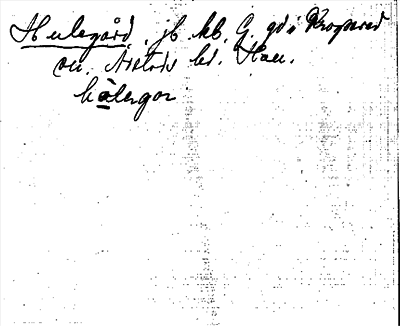 Hulegård. jb kb. G. gd i Krogsered
sn. Årstads hd. Hall.
hàlegɑr